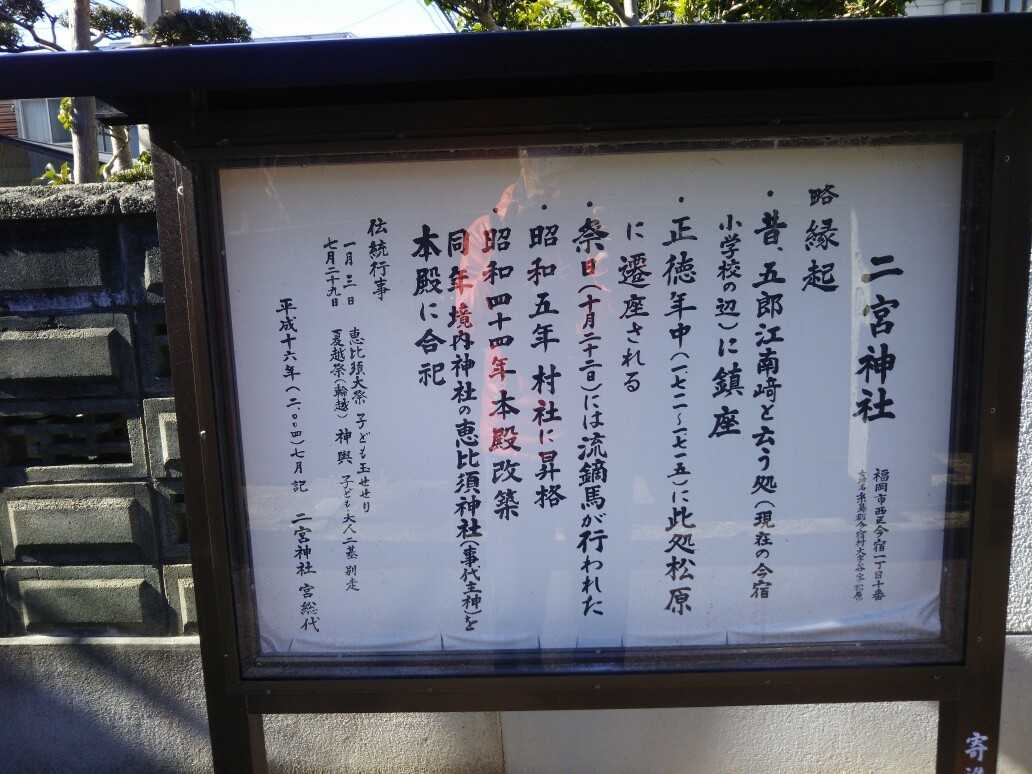 二宮神社
福岡市西区今宿一丁目十番
略縁起
・昔、五郎江南崎と云う処(現在の今宿
小学校の辺)に鎮座
・正徳年中(一七一一~一七一五)に此処松原
に遷座される
・祭日(十月二十二日)には流鏑馬が行われた
・昭和五年 村社に昇格
・昭和四十四年本殿改築
同年境内神社の恵比須神社(事代主神)を
本殿に合祀
伝統行事
一月三日 恵比須大祭 子ども玉せせり
七月二十九日 夏越祭(輪越) 神輿 子ども大人二基別走
平成十六年(二〇〇四)七月記 二宮神社 宮総代
寄進